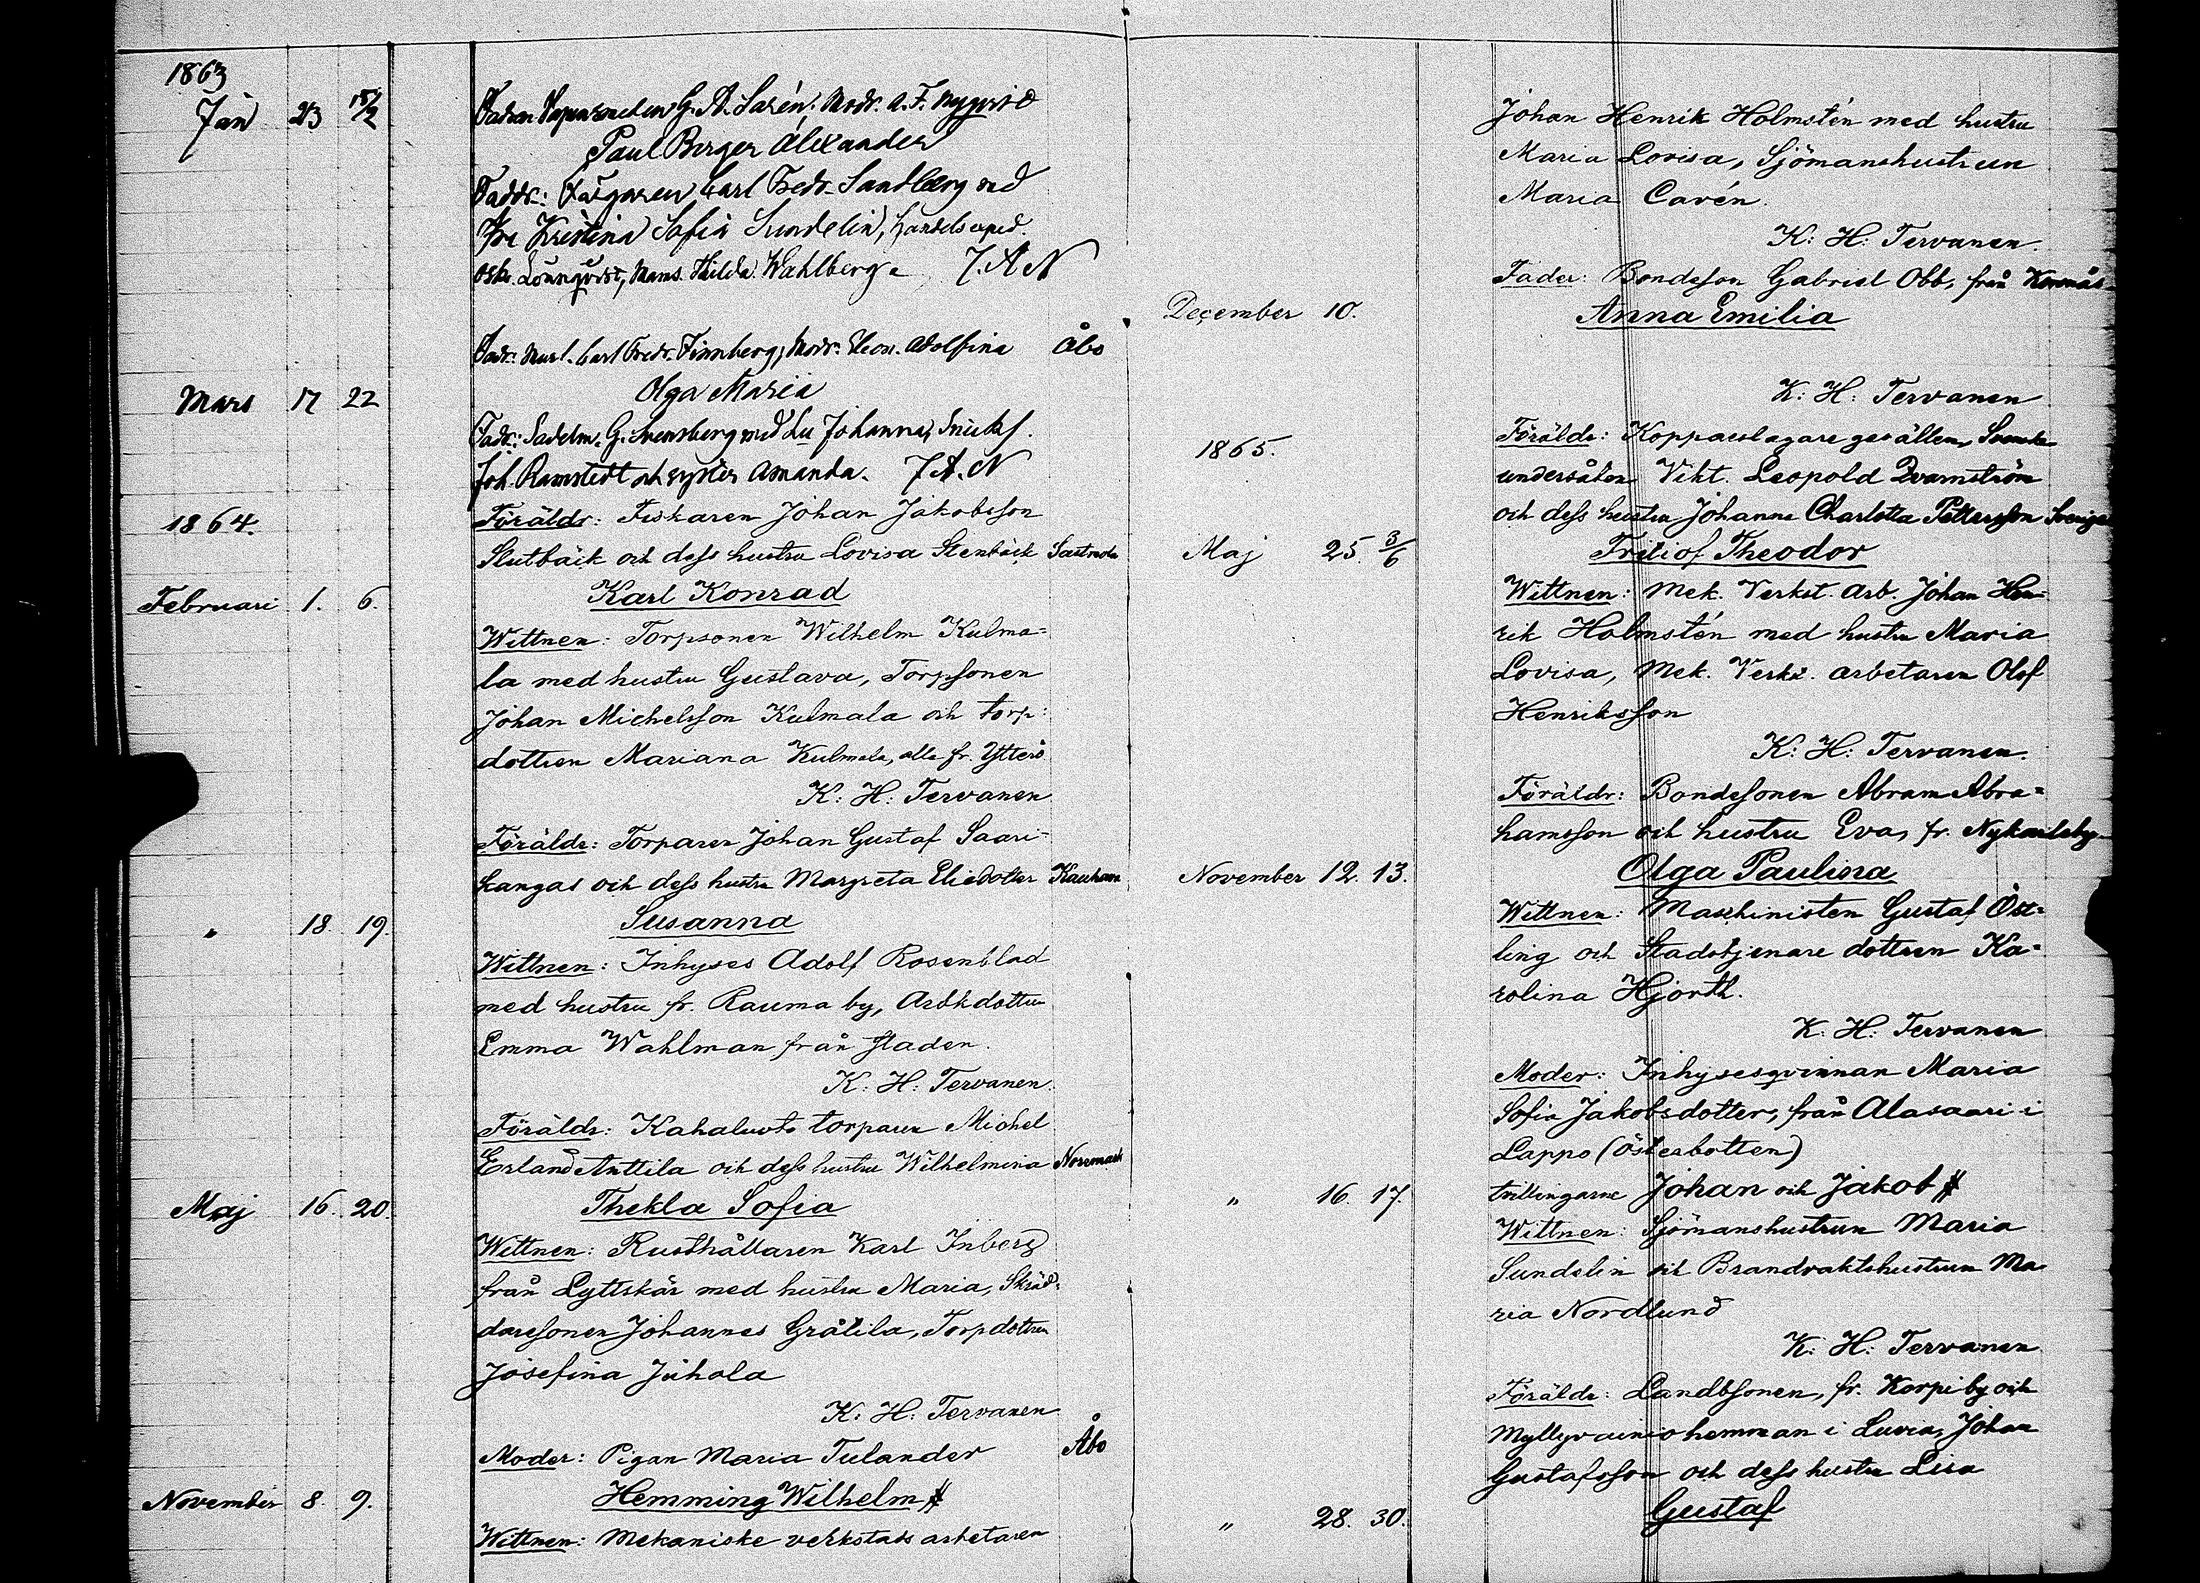 1863
Jan 23 15/2
Fadren G. A. Sarén. Modr. A. F. Nyqvist
Paul Birger Alexander
Faddr: Färgaren Carl Fredr. Sandberg med
fru Kristina Sofia Sundelin, handels exped.
Osk. Lönnqvist, Mams. Hilda Wahlberg J. A. N
Fadr: Murl. Carl Fredr. Finnberg, Modr. Adolfina Åbo
Olga Maria
Mars 17 22
Fadr: Sadelm. G. Svensberg med Johanna,
Joh. Ramstedt och syster Amanda. J. A. N
1864.
Föräldr: Fiskaren Johan Jakobsson
Slutbäck och dess hustru Lovisa Stenbäck Sastmola
Karl Konrad
Februari 1. 6.
Wittnen: Torpsonen Wilhelm Kulma=
la med hustru Gustava, Torpsonen
Johan Michelsson Kulmala och torp:
dottren Mariana Kulmala, alla fr. Ytterö
K: H: Tervanen
Föräldr: Torparen Johan Gustaf Saari=
kangas och dess hustru Margreta Eliedotter Kauham
Susanna
" 18 19.
Wittnen: Inhyses Adolf Rosenblad
med hustru fr. Rauma by, Arbkdottren
Emma Wahlman från staden.
K: H: Tervanen.
Föräldr: Kahaluoto torparen Michel
Erland Anttila och dess hustru Wilhelmina Norrmark
Thekla Sofia
Maj 16. 20.
Wittnen: Rusthållaren Karl Inberg
från Lyttskär med hustru Maria, Skräd=
daresonen Johannes Grålila, Torpdottren
Josefina Juhola
K: H: Tervanen
Moder: Pigan Maria Tulander Åbo
Hemming Wilhelm #
November 8. 9.
Wittnen: Mekaniske verkstads arbetaren
Johan Henrik Holmstén med hustru
Maria Lovisa, Sjömanshustrun
Maria Cavén.
K: H: Tervanen.
Fader: Bondesson Gabriel Obb, från Korsnäs
December 10. Anna Emilia
K: H: Tervanen
1865.
Föräldr: Kopparslagare gesällen, Svenske
undersåten Vikt. Leopold Qvarnström
och dess hustru Johanna Charlotta Pettersson Sverige
Maj 25. 3/6 Fritiof Theodor
Wittnen: Mek. Verkst. arb. Johan Hen=
rik Holmstén med hustru Maria
Lovisa, Mek. Verkst. arbetaren Olof
Henriksson
K: H: Tervanen.
Föräldr: Bondesonen Abram Abra=
hamsson och hustru Eva, fr. Nykarleby
November 12. 13. Olga Paulina
Wittnen: Maschinisten Gustaf Öst=
ling och Stadstjenare dottren Ka=
rolina Hjorth.
K: H: Tervanen
Moder: Inhysesqvinnan Maria
Sofia Jakobsdotter, från Alasaari i
Lappo (Österbotten)
" 16. 17. tvillingarne Johan och Jakob #
Wittnen: Sjömanshustrun Maria
Sundelin och Brandvaktshustrun Ma=
ria Nordlund
K: H: Tervanen
Föräldr: Landbsonen, fr. Korpi by och
Myllyvainio hemman i Luvia, Johan
Gustafsson och dess hustru Lisa
" 28. 30. Gustaf